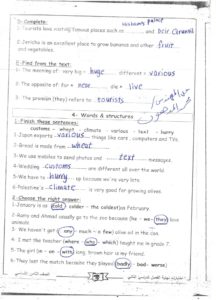 D- Complete:
1.Tourists love visiting famous places such as Hisham's palace and Deir Quruntul
2.Jericho is an excellent place to grow bananas and other fruit
and vegetables.
E-Find from the text:
1- The meaning of: very big = huge different = various
2- The opposite of: far × near die × live
3- The pronoun (they) refers to tourists
4- Words & structures
1- Finish these sentences:
customs - wheat - climate - various - text - hurry
1-Japan exports various things like cars, computers and TVs.
2-Bread is made from wheat
3-We use mobiles to send photos and text messages.
4-Wedding customs are different all over the world.
5-We have to hurry up because we're very late.
6-Palestine's climate is very good for growing olives.
2- Choose the right answer:
1-January is (cold - colder - the coldest) as February.
2-Rami and Ahmad usually go to the zoo because (he - we - they) love
animals.
3-We haven't got (any - much - a few) olive oil in the can.
4-I met the teacher (where - who - which) taught me in grade 7.
5-The girl (in - on - with) long, brown hair is my friend.
6-They lost the match because they played (badly - bad - worse).